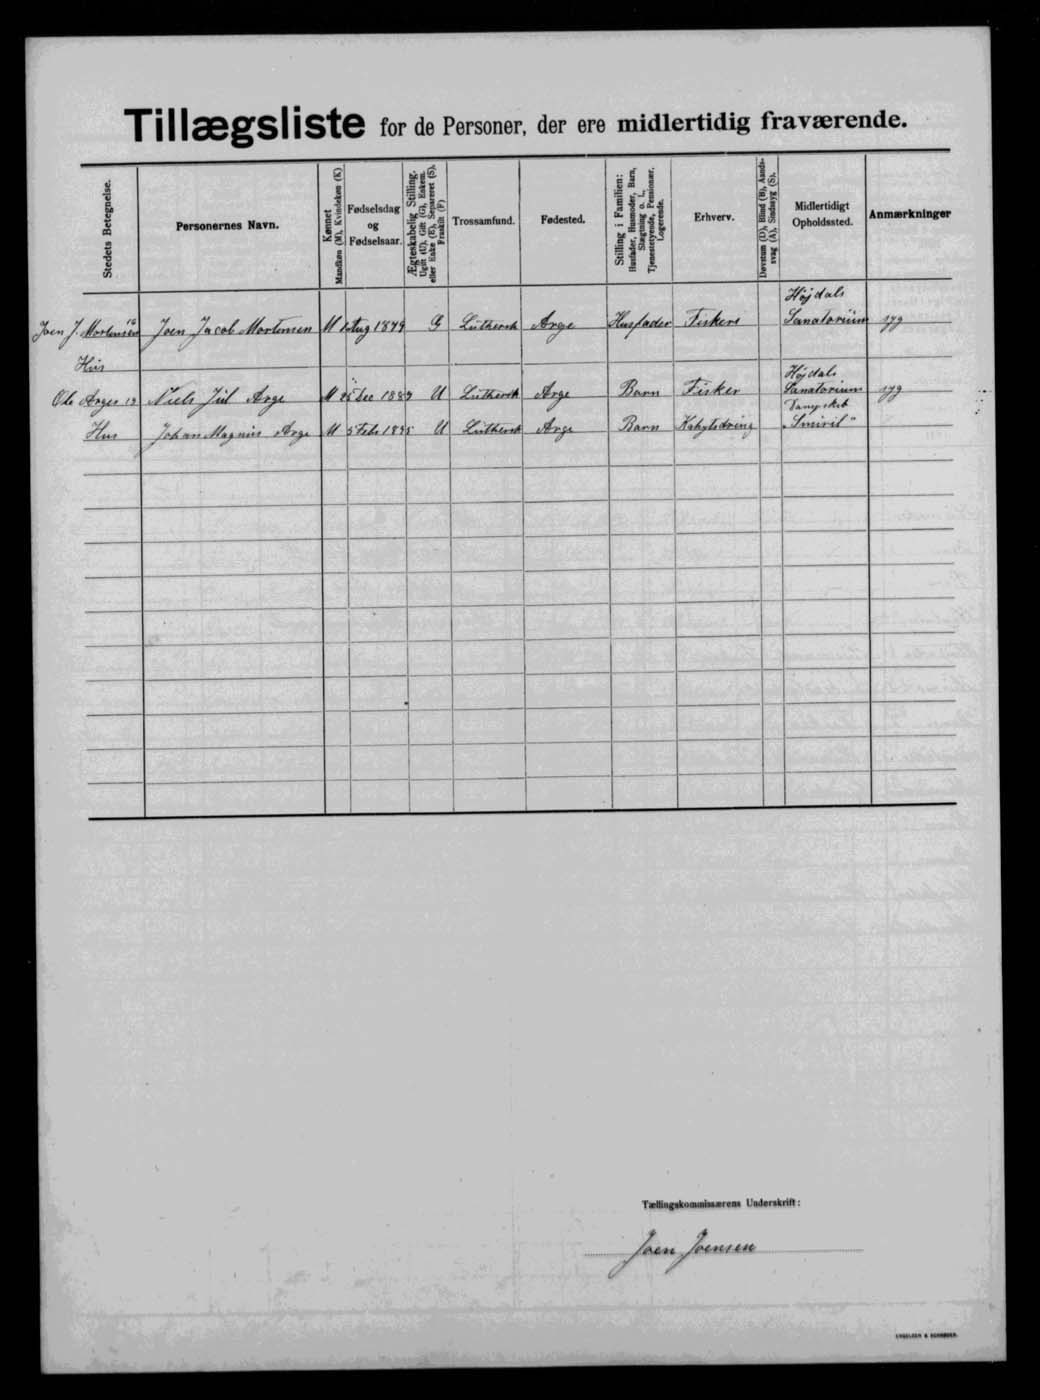 Tillægsliste for de Personer, der ere midlertidig fraværende.
Stedets Betegnelse.
Personernes Navn.
Kønnet
Mandkøn (M), Kvindekøn (K)
Fødselsdag
og
Fødselsaar.
Ægteskabelig Stilling.
Ugift (U), Gift (G), Enkem.
eller Enke (E), Separeret (S),
Fraskilt (F)
Trossamfund.
Fødested.
Stilling i Familien:
Husfader, Husmoder, Barn,
Slægtning o. l.,
Tjenestetyende, Pensionær,
Logerende.
Erhverv.
Døvstum (D), Blind (B), Aands-
svag (A), Sindssyg (S).
Midlertidigt
Opholdssted.
Anmærkninger
Joen J. Mortensen 16 Joen Jacob Mortensen M Aug 1879 G Luthersk Arge Husfader Fiskeri Højdals Sanatorium syg
Hus
Ole Arges 19 Niels Júl Arge M 25 Dec 1889 U Luthersk Arge Barn Fisker Højdals Sanatorium syg
Hus Johan Magnus Arge M 5 Feb 1895 U Luthersk Arge Barn Kahytsdreng Dampskib „Smiril“
Tællingskommissærens Underskrift:
Joen Joensen